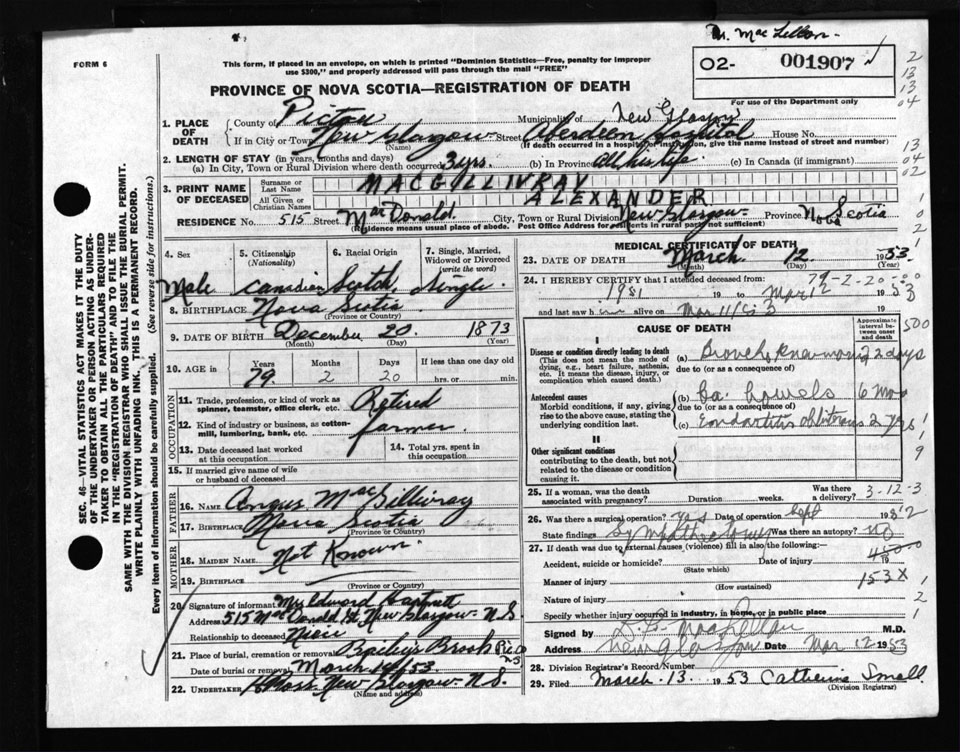 Dr. MacLellan.
FORM 6
This form, if placed in an envelope, on which is printed "Dominion Statistics—Free, penalty for improper
use $300," and properly addressed will pass through the mail "FREE"
PROVINCE OF NOVA SCOTIA—REGISTRATION OF DEATH
02- 001907
For use of the Department only
2
13
13
04
13
04
02
1
0
2
1
1. PLACE OF DEATH
County of Pictou Municipality of New Glasgow
If in City or Town New Glasgow Street Aberdeen Hospital House No.
(Name) (If death occurred in a hospital or institution, give the name instead of street and number)
2. LENGTH OF STAY (in years, months and days)
(a) In City, Town or Rural Division where death occurred 3 yrs. (b) In Province All his life. (c) In Canada (if immigrant)
3. PRINT NAME OF DECEASED
Surname or Last Name MACGILLIVRAY
All Given or Christian Names ALEXANDER
RESIDENCE No. 515 Street MacDonald. City, Town or Rural Division New Glasgow Province Nova Scotia
(Residence means usual place of abode. Post Office Address for residents in rural parts not sufficient)
4. Sex Male
5. Citizenship (Nationality) Canadian
6. Racial Origin Scotch,
7. Single, Married, Widowed or Divorced (write the word) Single
8. BIRTHPLACE Nova Scotia
(Province or Country)
9. DATE OF BIRTH December 20. 1873
(Month) (Day) (Year)
10. AGE in Years 79. Months 2 Days 20 If less than one day old
hrs. or min.
OCCUPATION
11. Trade, profession, or kind of work as
spinner, teamster, office clerk, etc. Retired
12. Kind of industry or business, as cotton-
mill, lumbering, bank, etc. farmer
13. Date deceased last worked
at this occupation
14. Total yrs. spent in
this occupation
15. If married give name of wife
or husband of deceased
FATHER
16. NAME Angus MacGillivray
17. BIRTHPLACE Nova Scotia
(Province or Country)
MOTHER
18. MAIDEN NAME Not Known.
19. BIRTHPLACE
(Province or Country)
20. Signature of informant Mrs Edward Hartnett
Address 515 MacDonald St. New Glasgow N.S.
Relationship to deceased Niece
21. Place of burial, cremation or removal Bailey's Brook Pic Co N.S.
Date of burial or removal March 14/53
22. UNDERTAKER New Glasgow N.S.
(Name and address)
MEDICAL CERTIFICATE OF DEATH
23. DATE OF DEATH March 12 1953
(Month) (Day) (Year)
24. I HEREBY CERTIFY that I attended deceased from: 79-2-20
1951 19 to Mar 12 1953
and last saw him alive on Mar 11/53
CAUSE OF DEATH
Approximate interval between onset and death
500
I
Disease or condition directly leading to death
(This does not mean the mode of
dying, e.g., heart failure, asthenia,
etc. It means the disease, injury, or
complication which caused death.)
(a) Broncho pneumonia 2 days
due to (or as a consequence of)
Antecedent causes
Morbid conditions, if any, giving
rise to the above cause, stating the
underlying condition last.
(b) Ca. bowels 6 mos
due to (or as a consequence of)
(c) Endarteritis obliterans 2 yrs
II
Other significant conditions
contributing to the death, but not
related to the disease or condition
causing it.
1
1
9
25. If a woman, was the death
associated with pregnancy? Duration weeks. Was there a delivery? 3-12-3
26. Was there a surgical operation? yes Date of operation Sept 1952
State findings Sympathectomy Was there an autopsy? no
27. If death was due to external causes (violence) fill in also the following:—
Accident, suicide or homicide? Date of injury 19
(State which)
Manner of injury 153X
(How sustained)
Nature of injury
Specify whether injury occurred in industry, in home, or in public place
1
2
1
Signed by MacLellan M.D.
Address New Glasgow Date Mar 12 1953
28. Division Registrar's Record/Number
29. Filed March 13 1953 Catherine Small.
(Division Registrar)
SEC. 46—VITAL STATISTICS ACT MAKES IT THE DUTY
OF THE UNDERTAKER OR PERSON ACTING AS UNDER-
TAKER TO OBTAIN ALL THE PARTICULARS REQUIRED
IN THE "REGISTRATION OF DEATH" AND TO FILE THE
SAME WITH THE DIVISION REGISTRAR WHO SHALL ISSUE THE BURIAL PERMIT.
WRITE PLAINLY WITH UNFADING INK. THIS IS A PERMANENT RECORD.
Every item of information should be carefully supplied. (See reverse side for instructions.)